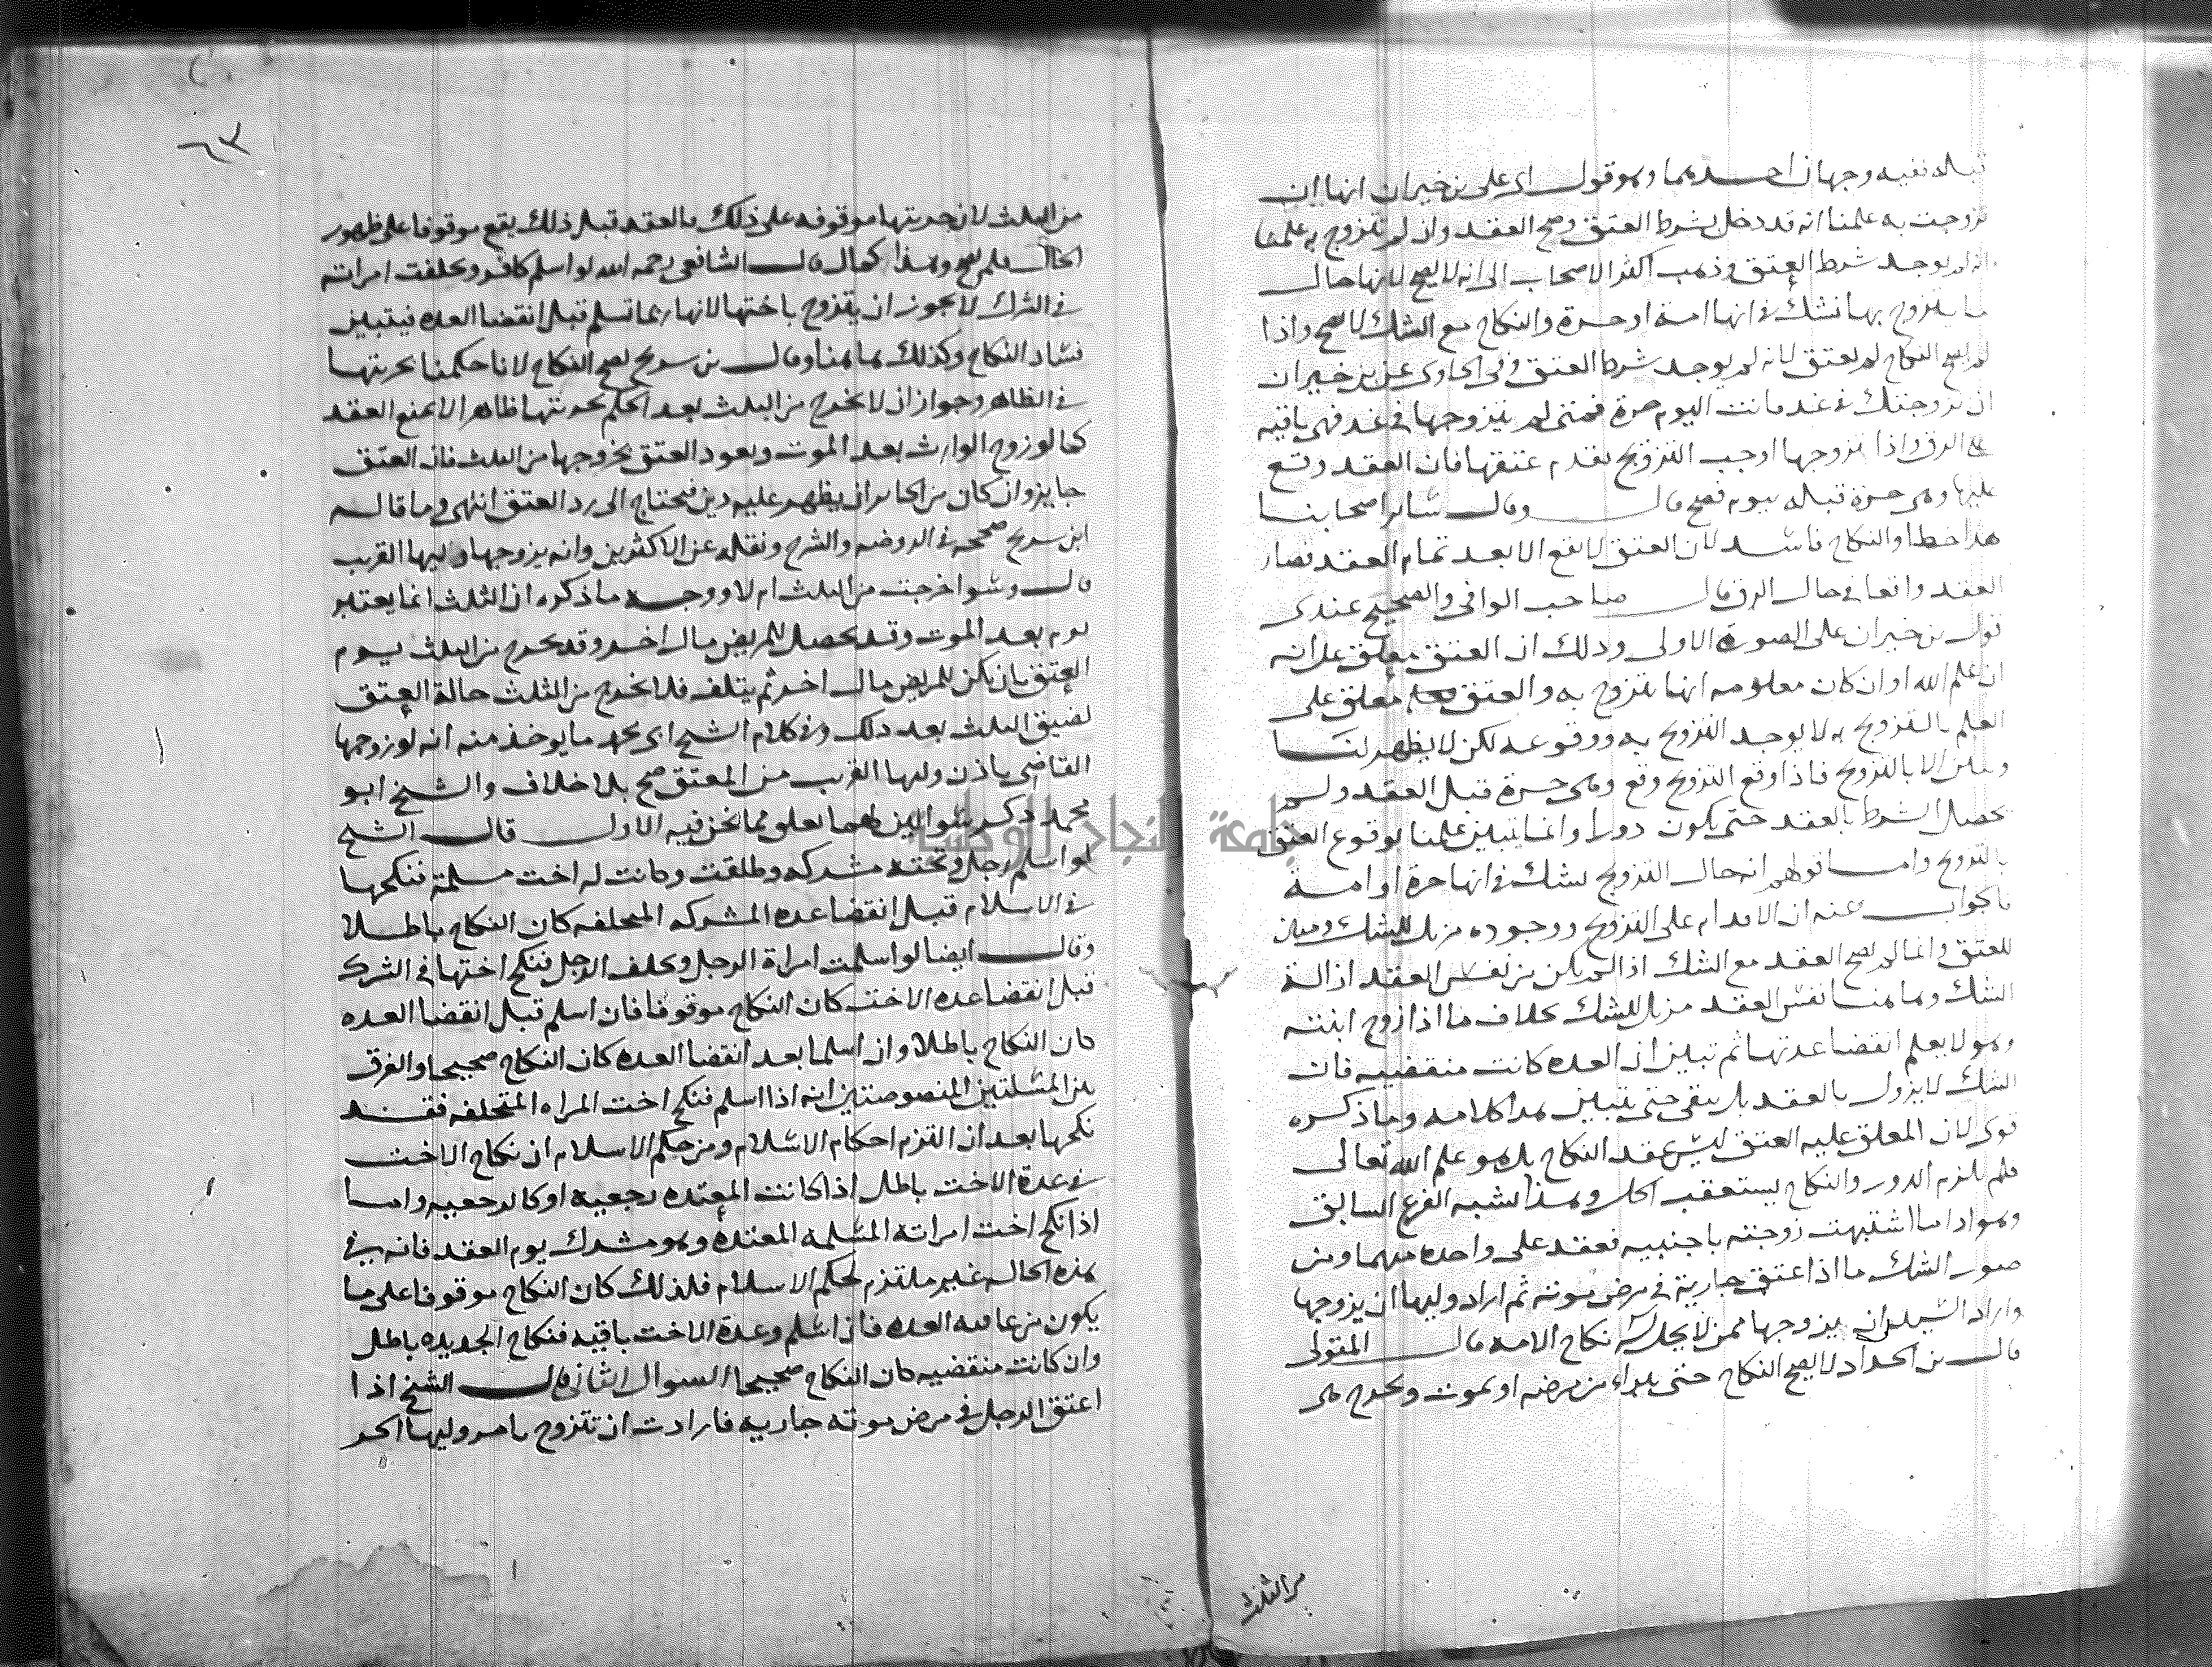 قبله ففيه وجهان احدهما وهو قول ابى على بن خيران انها ان
تزوجت به علمنا انه قد دخل بشرط العتق وصح العقد وان لم تتزوج به علمنا
انه لم يوجد شرط العتق وذهب اكثر الاصحاب الى انه لا يصح لانها حال
ما يتزوج بها نشك فى انها امة او حرة والنكاح مع الشك لا يصح واذا
لم يصح النكاح لم يعتق لانه لم يوجد شرط العتق وفى الحاوى عن بن خيران
ان تزوجتك فى غد فانت اليوم حرة فمتى لم يتزوجها فى غد فهى باقيه
على الرق واذا تزوجها اوجب التزويج تقدم عتقها فان العقد وقع
عليها وهى حرة قبله بيوم فصح قال وقال سائر اصحابنا
هذا خطا والنكاح فاسد لان العتق لا يقع الا بعد تمام العقد فصار
العقد واقعا فى حال الرق قال صاحب الوافى والصحيح عندى
قول بن خيران على الصورة الاولى وذلك ان العتق معلق على انه
ان علم الله او ان كان معلومه انها تتزوج به والعتق معلق على
العلم بالتزويج به لا بوجد التزويج به ووقوعه لكن لا يظهر لنا
الا بالتزويج فاذا وقع التزويج وقع وهى حرة قبل العقد ولم
يحصل الشرط بالعقد حتى يكون دورا وانما يتبين علمنا بوقوع العتق
بالتزويج واما قولهم انه حال التزويج يشك فى انها حرة او امة
فالجواب عنه ان الاقدام على التزويج ووجوده مزيل للشك ومبين
للعتق وانما لم يصح العقد مع الشك اذا لم يكن من نفس العقد ازالة
الشك وها هنا نفس العقد مزيل للشك بخلاف ما اذا زوج ابنته
وهو لا يعلم انقضا عدتها ثم تبين ان العده كانت منقضيه فان
الشك لا يزول بالعقد بل يبقى حتى يتبين هذا كلامه وما ذكره
قوى لان المعلق عليه العتق ليس عقد النكاح بل هو علم الله تعالى
فلم يلزم الدور والنكاح يستعقب الحل وهذا يشبه الفرع السابق
وهو اذا ما اشتبهت زوجته باجنبيه فعقد على واحده منهما ومن
صور الشك ما اذا عتق جارية فى مرض موته ثم اراد وليها ان يزوجها
واراد السيد ان يزوجها ممن لا يحل له نكاح الامه قال المتولى
قال بن الحداد لا يصح النكاح حتى يبراء من مرضه او يموت وتخرج هى
من الثلث
٦٣
من الثلث لان حريتها موقوفه على ذلك بالعقد قبل ذلك يقع موقوفا على ظهور
الحال فلم يصح وهذا كما قال الشافعى رحمه الله لو اسلم كافر وتخلفت امراته
فى الشرك لا يجوز ان يتزوج باختها لانها ربما تسلم قبل انقضا العده فيتبين
فساد النكاح وكذلك ها هنا وقال بن سريج يصح النكاح لانا حكمنا بحريتها
فى الظاهر وجواز ان لا تخرج من الثلث بعد الحكم بحريتها ظاهرا لا يمنع العقد
كما لو زوج الوارث بعد الموت وبعود العتق بخروجها من الثلث فان العتق
جايز وان كان من الجائز ان يظهر عليه دين فيحتاج الى رد العتق انتهى وما قاله
ابن سريج صححه فى الروضه والشرح ونقله عن الاكثرين وانه يزوجها وليها القريب
قال وسوا خرجت من الثلث ام لا ووجه ما ذكره ان الثلث انما يعتبر
يوم بعد الموت وقد يحصل للمريض مال اخر وقد تخرج من الثلث يوم
العتق بان يكن للمريض مال اخر ثم يتلف فلا تخرج من الثلث حالة العتق
لضيق الثلث بعد ذلك وفى كلام الشيخ ابى محمد ما يوخذ منه انه لو زوجها
القاضى باذن وليها القريب من المعتق صح بلا خلاف والشيخ ابو
محمد ذكر سوالين لهما تعلق بما نحن فيه الاول قال الشيخ
لو اسلم رجل وتحته مشركه وطلقت وكانت له اخت مسلمة فنكحها
فى الاسلام قبل انقضا عده المشركه المتخلفه كان النكاح باطلا
وقال ايضا لو اسلمت امراة الرجل وتخلف الرجل فنكح اختها فى الشرك
قبل انقضا عده الاخت كان النكاح موقوفا فان اسلم قبل انقضا العده
كان النكاح باطلا وان اسلما بعد انقضا العده كان النكاح صحيحا والفرق
بين المسئلتين المنصوصتين انه اذا اسلم فنكح اخت المراه المتخلفه فقد
نكحها بعد ان التزم احكام الاسلام ومن حكم الاسلام ان نكاح الاخت
فى عدة الاخت باطل اذا كانت المعتده رجعية او كالرجعيه واما
اذا نكح اخت امراته المسلمه المعتده وهو مشرك يوم العقد فانه فى
هذه الحاله غير ملتزم لحكم الاسلام فلذلك كان النكاح موقوفا على ما
يكون من عاقبه العده فان اسلم وعدة الاخت باقيه فنكاح الجديده باطل
وان كانت منقضيه كان النكاح صحيحا السوال الثانى قال الشيخ اذا
اعتق الرجل فى مرض موته جاريه فارادت ان تتزوج بامر وليها الحر
جامعة النجاح الوطنية